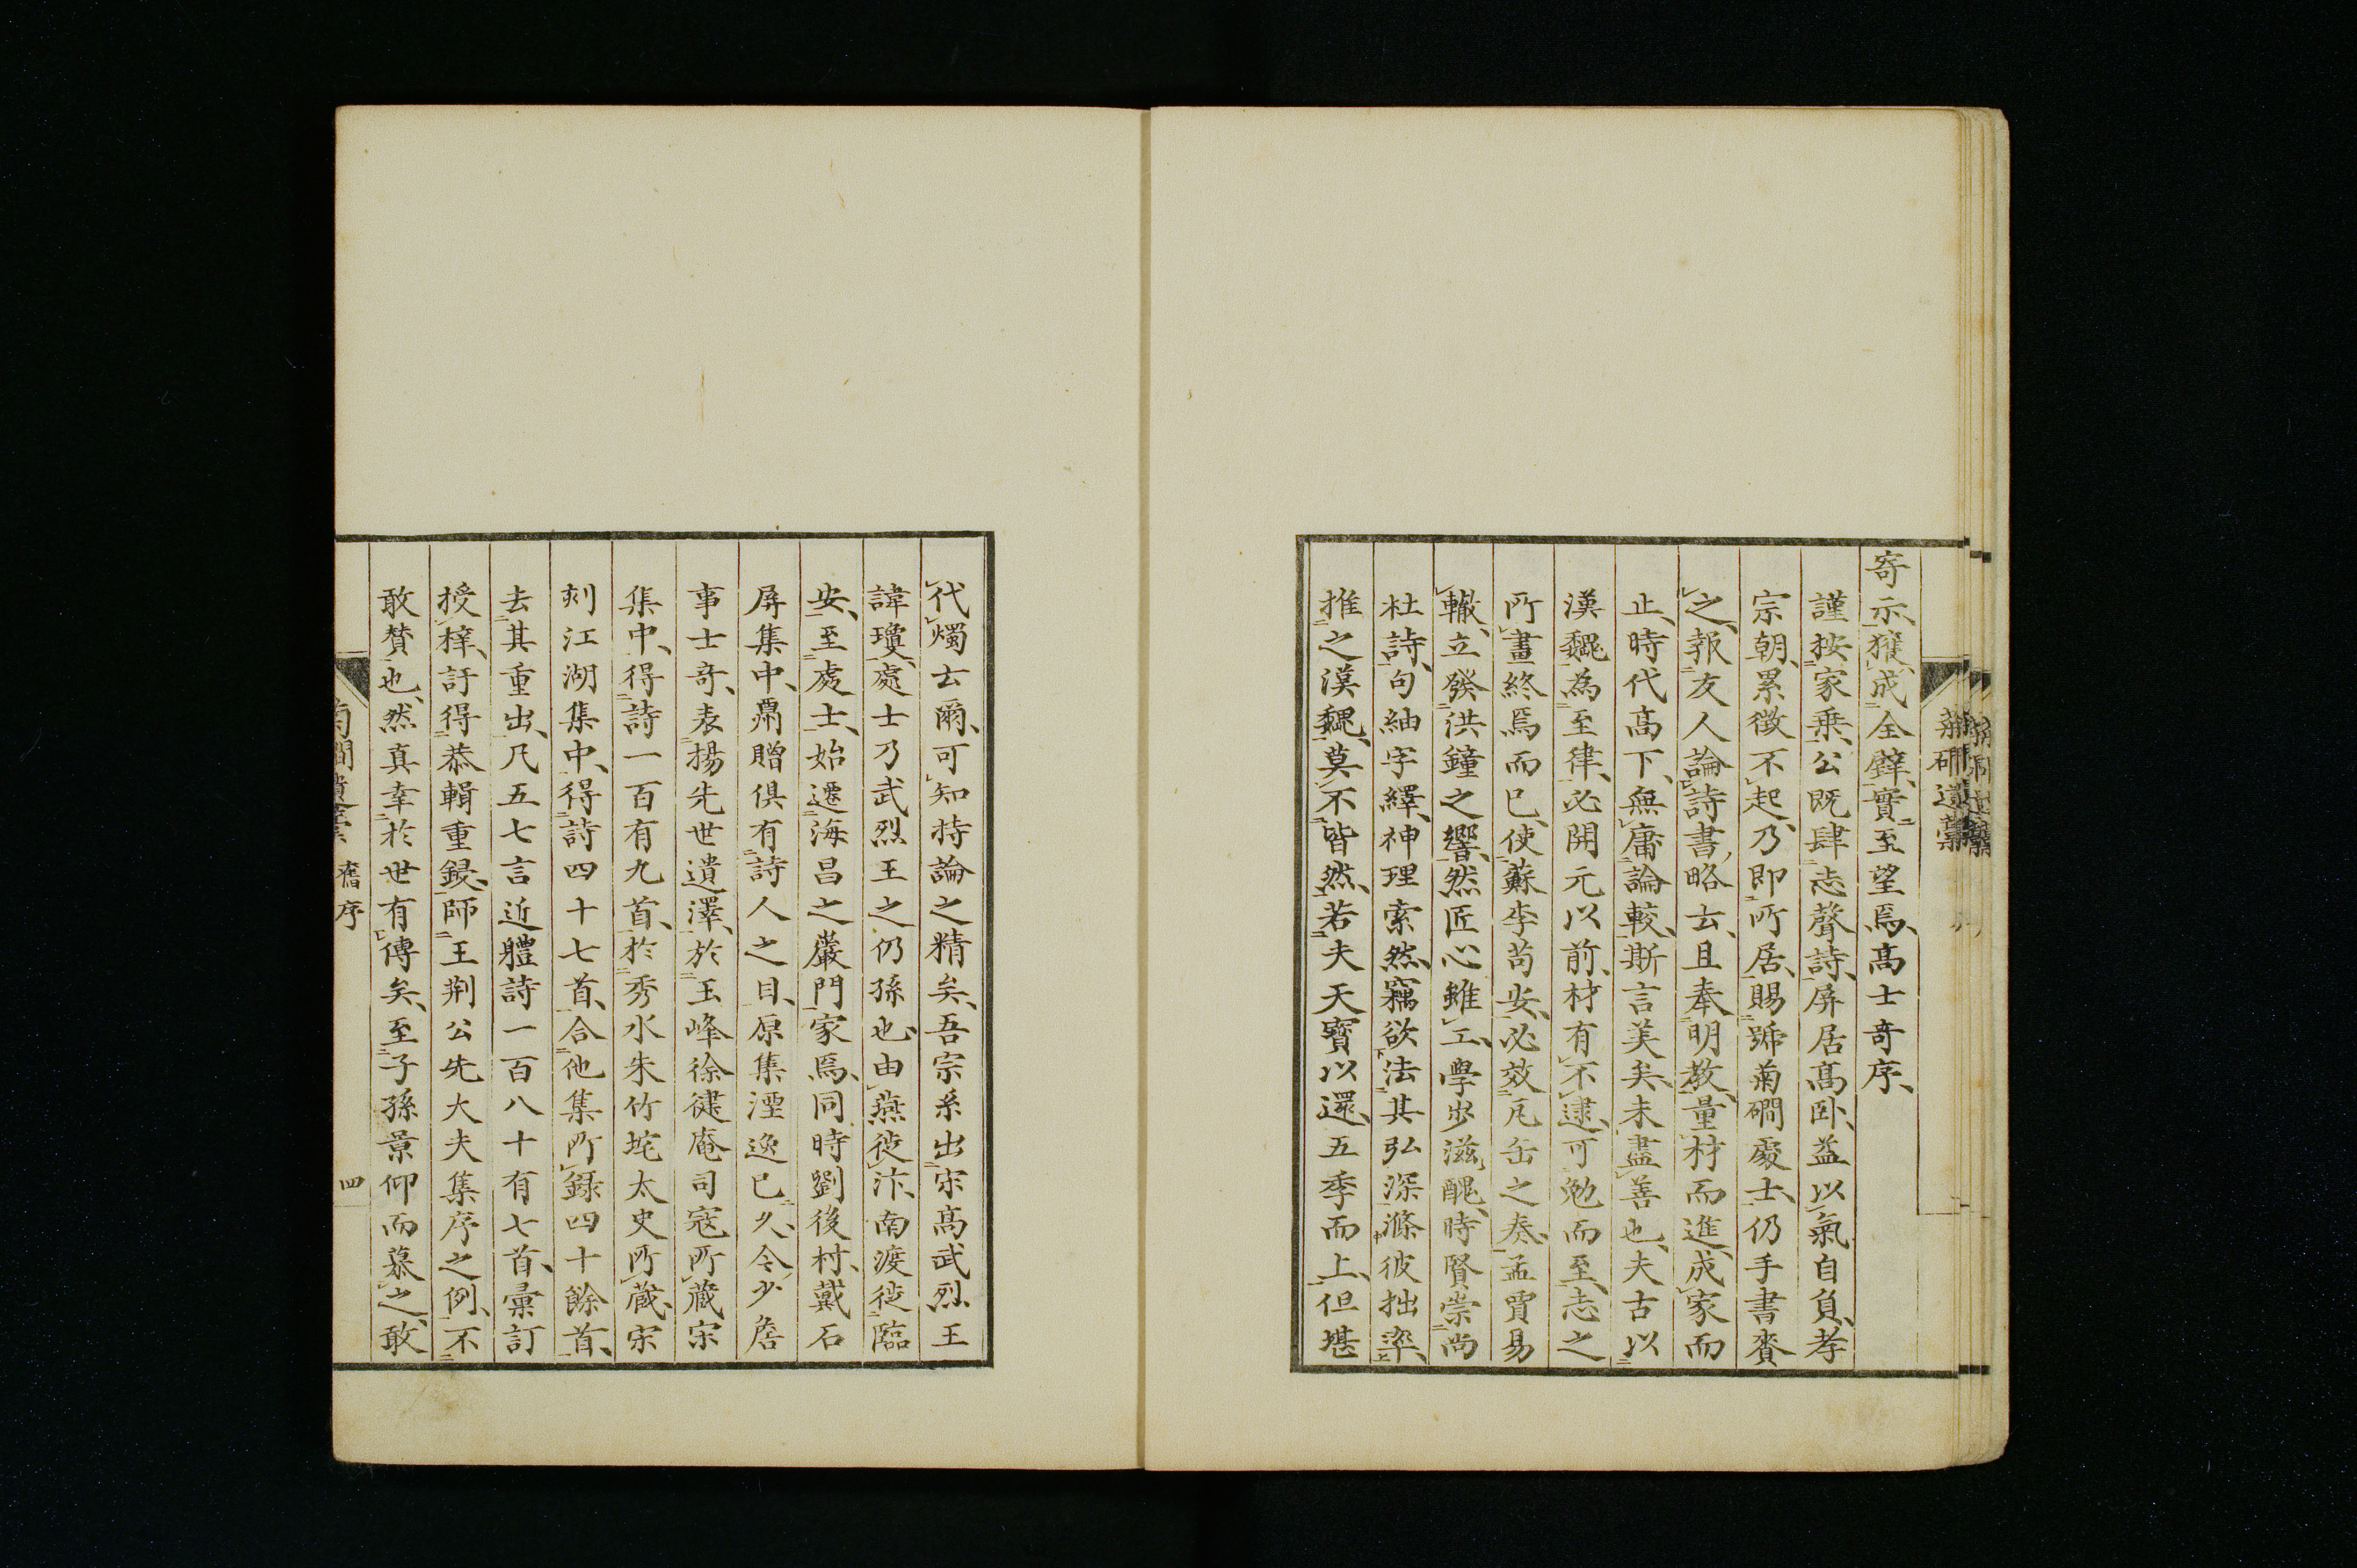 寄示獲成全璧實至望焉高士奇序
謹按家乗公既肆志聲詩屏居高卧益以氣自負孝
宗朝累徴不起乃即所居賜號菊磵處士仍手書賚
之報友人論詩書略云且奉明教量材而進成家而
止時代高下無庸論較斯言美矣未盡善也夫古以
漢魏為至律必開元以前材有不逮可勉而至志之
所畫終焉而已使蘇李苟安必效瓦缶之奏孟賈易
轍立發洪鐘之響然匠心雖工學步滋醜時賢崇尚
杜詩句紬字繹神理索然竊欲法其弘深滌彼拙率
推之漢魏莫不皆然若夫天寶以還五季而上但堪
代燭云爾可知持論之精矣吾宗系出宋高武烈王
諱瓊處士乃武烈王之仍孫也由燕徙汴南渡徙臨
安至處士始遷海昌之巖門家焉同時劉後村戴石
屏集中鼎贈俱有詩人之目原集湮逸已久今少詹
事士奇表揚先世遺澤於玉峰徐健庵司寇所藏宋
集中得詩一百有九首於秀水朱竹垞太史所藏宋
刻江湖集中得詩四十七首合他集所録四十餘首
去其重出凡五七言近體詩一百八十有七首彙訂
授梓訏得恭輯重録師王荆公先大夫集序之例不
敢賛也然真幸於世有傳矣至子孫景仰而慕之敢
菊磵遺藁 舊序 四